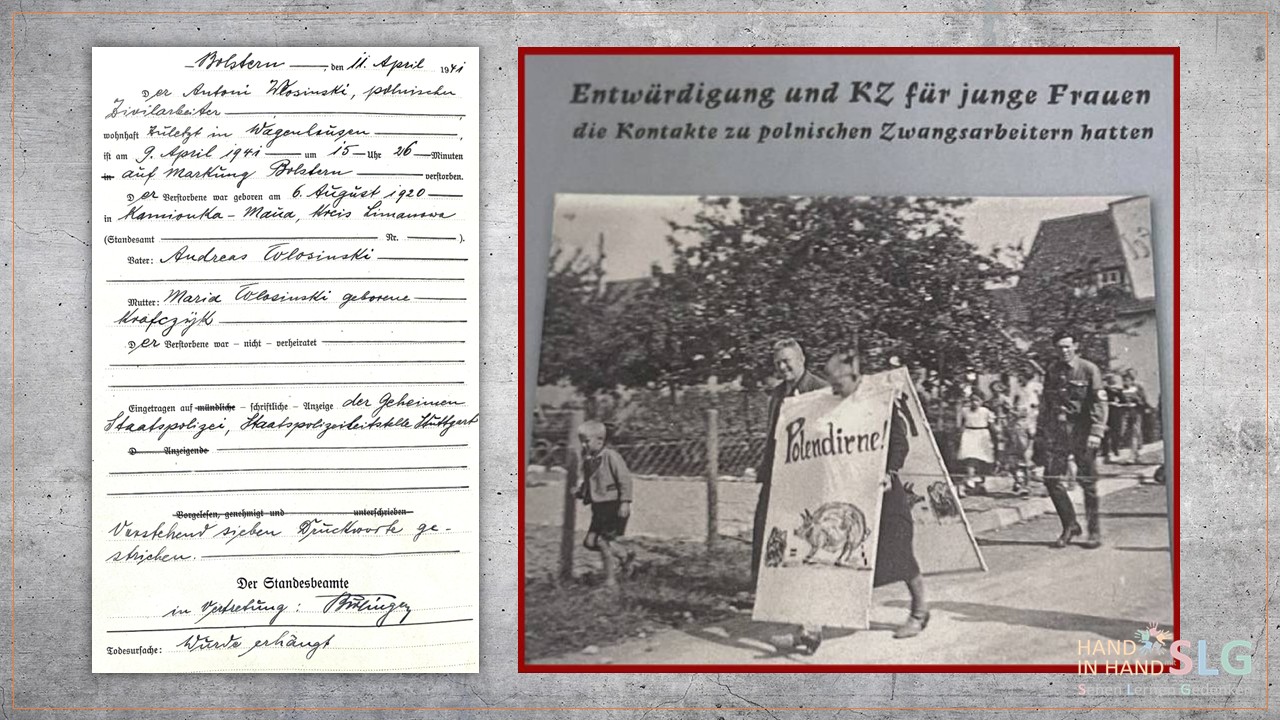 Bolstern, den 11. April 1941
Der Antoni Wlosinski, polnischer
Zivilarbeiter,
wohnhaft zuletzt in Wagenhausen,
ist am 9. April 1941 um 15 Uhr 26 Minuten
in auf Markung Bolstern verstorben.
Der Verstorbene war geboren am 6. August 1920
in Kamionka-Mała, Kreis Limanowa
(Standesamt Nr. ).
Vater: Andreas Wlosinski
Mutter: Maria Wlosinski geborene
Der Verstorbene war – nicht – verheiratet
Eingetragen auf mündliche – schriftliche – Anzeige der Geheimen
Staatspolizei, Staatspolizeileitstelle Stuttgart
D Anzeigende
Vorgelesen, genehmigt und unterschrieben
Vorstehend sieben Druckworte ge-
strichen.
Der Standesbeamte
in Vertretung:
Todesursache: Wurde erhängt
Entwürdigung und KZ für junge Frauen
die Kontakte zu polnischen Zwangsarbeitern hatten
Polendirne!
HAND
IN HAND SLG
Sehen Lernen Gedenken